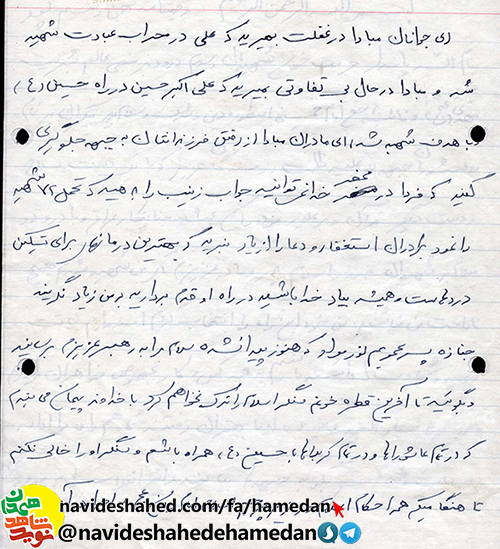 ای جوانان مبادا در غفلت بمیرید که علی در محراب عبادت شهید
شد و مبادا در حال بی تفاوتی بمیرید که علی اکبر حسین در راه حسین (ع)
با هدف شهید شد ای مادران مبادا از رفتن فرزندانتان به جبهه جلوگیری
کنید که فردا در محضر خدا نمی توانید جواب زینب را بدهید که تحمل ۷۲ شهید
را نمود برادران استغفار و دعا را از یاد نبرید که بهترین درمانها برای تسکین
دردهاست و همیشه بیاد خدا باشید و در راه او قدم بردارید برمن زیاد گریه نکنید
جنازه پسر عمویم نوز مولود که هنوز پیدا نشده سلام مرا به رهبر عزیزم برسانید
و بگوئید تا آخرین قطره خونم سنگر اسلام را ترک نخواهم کرد با خداوند پیمان می بندم
که در تمام عاشوراها و در تمام کربلاها با حسین (ع) همراه باشم و سنگر او را خالی نکنم
تا هنگامیکه همه احکام
navideshahed.com/fa/hamedan
@navideshahedehamedan
نوید شاهد
همدان